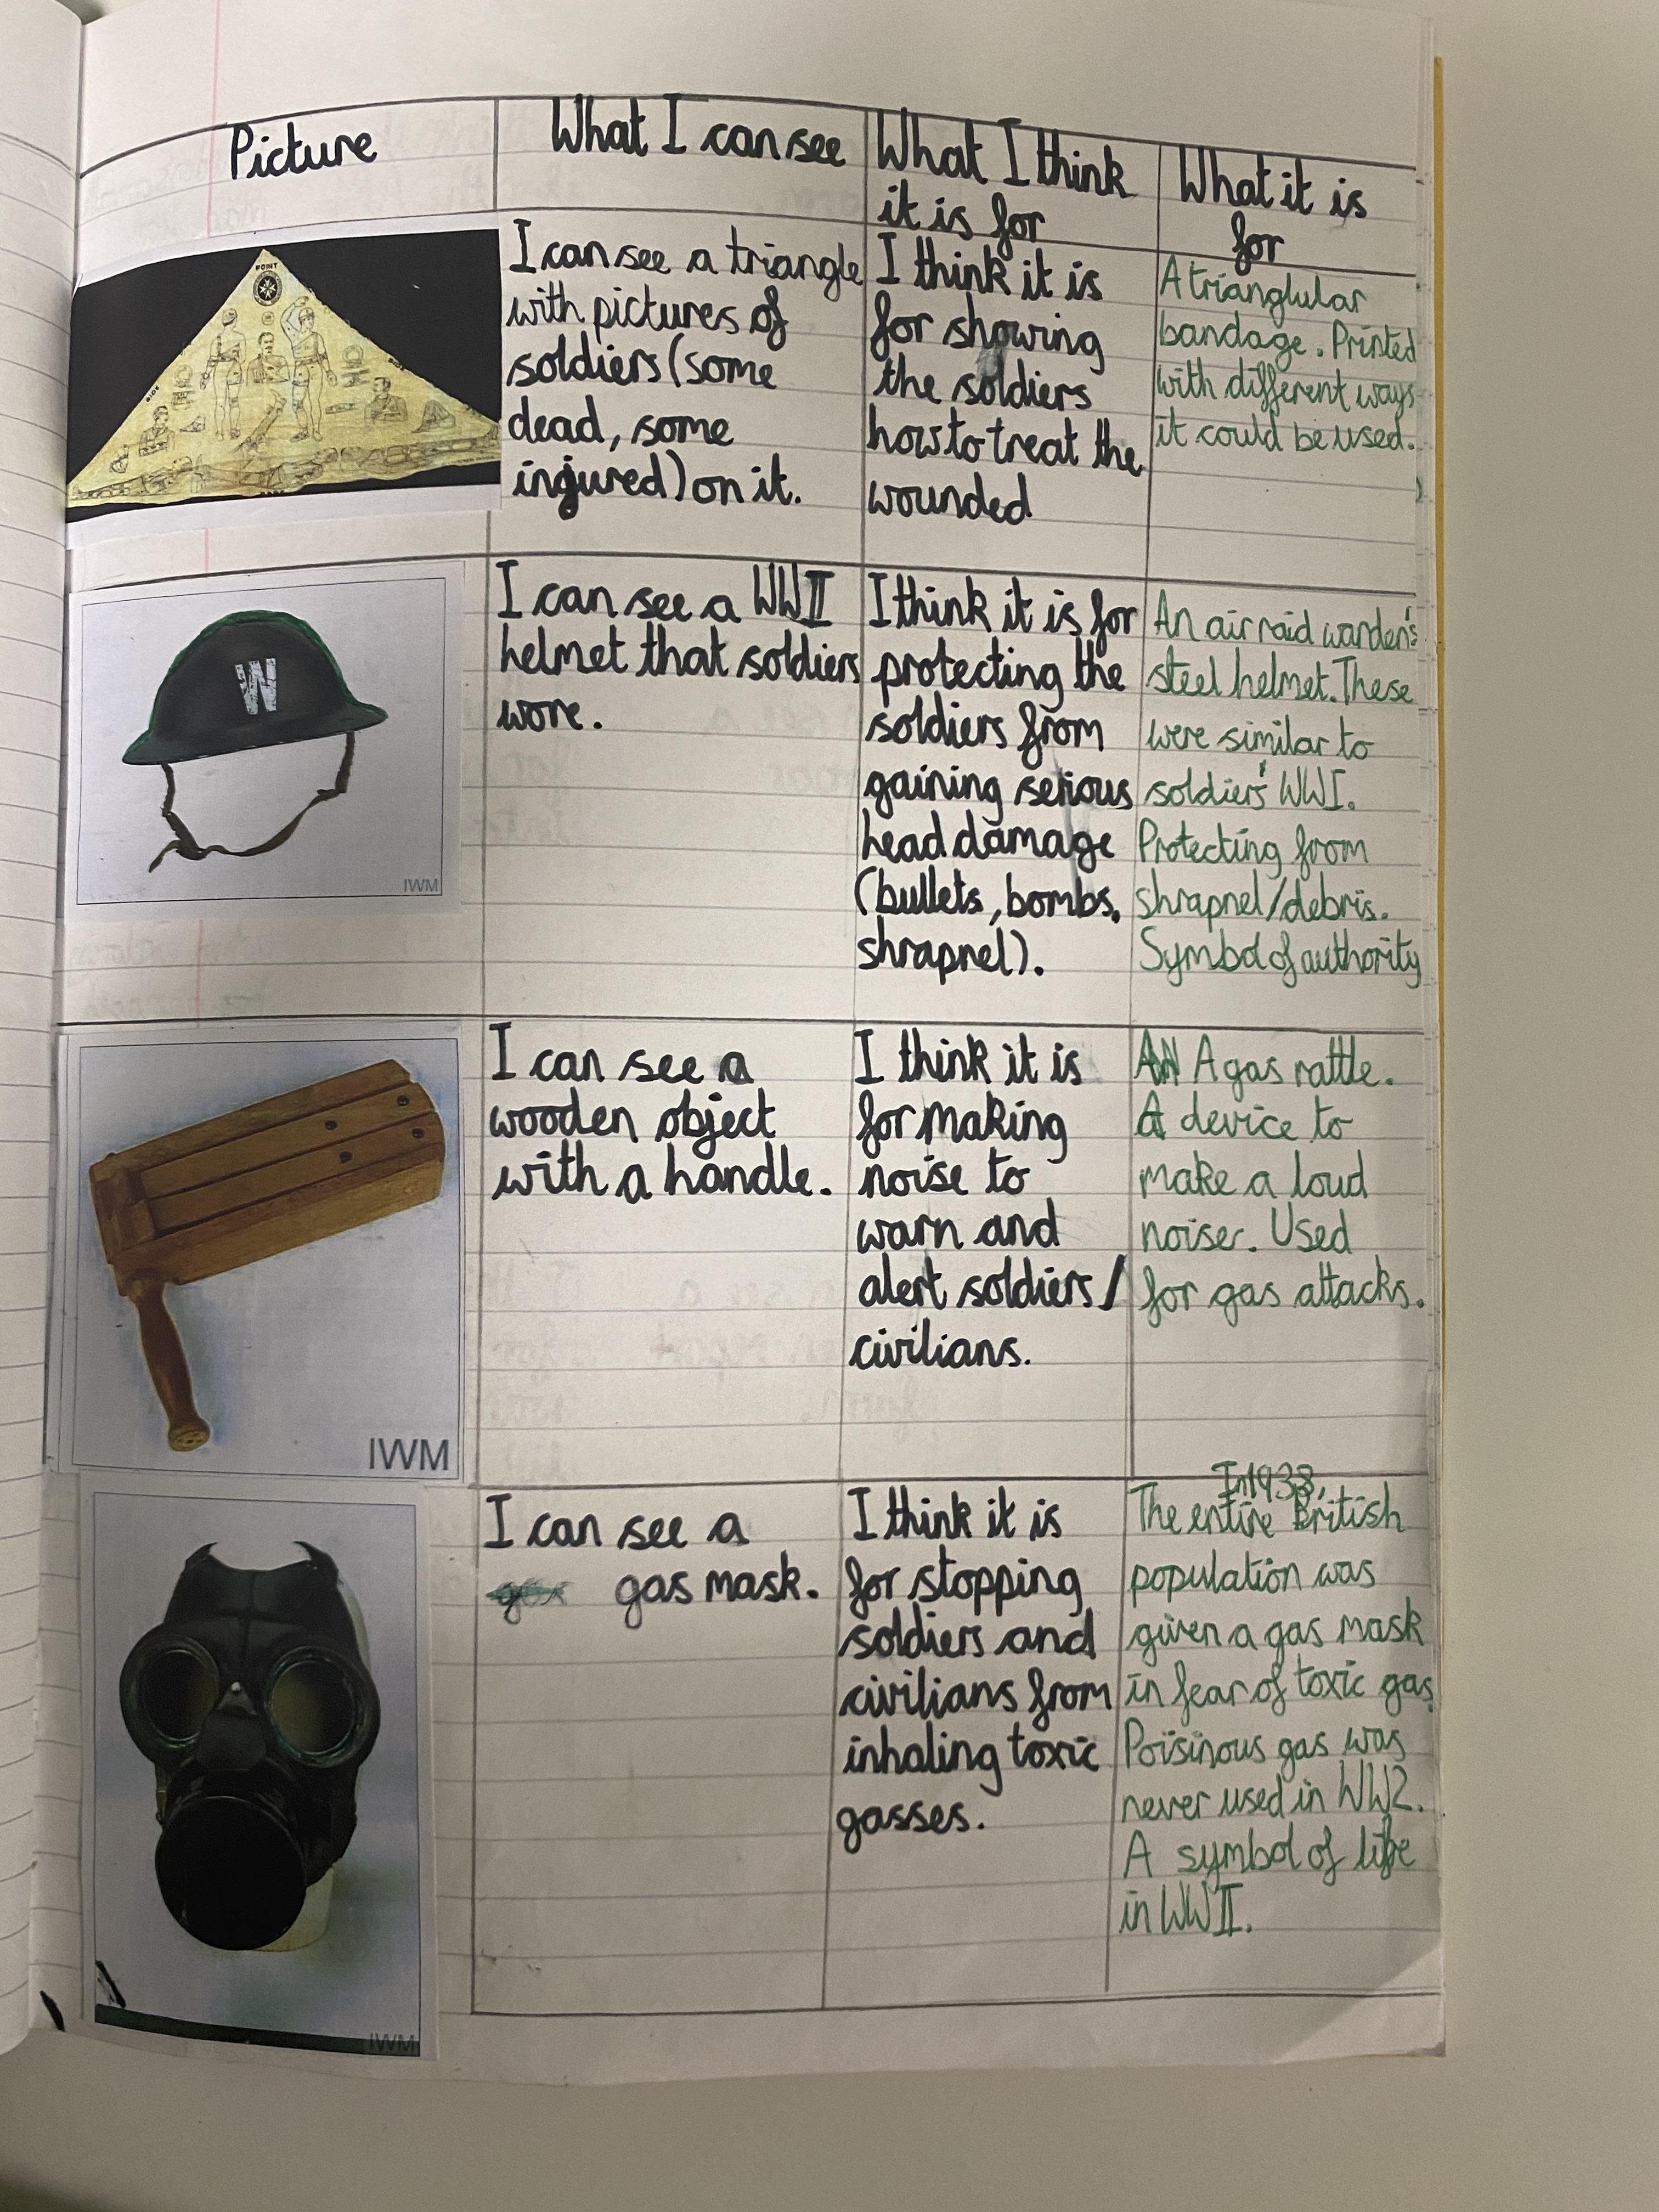 Picture
What I can see
What I think
it is for
What it is
for
POINT
I can see a triangle
with pictures of
soldiers (some
dead, some
injured) on it.
I think it is
for showing
the soldiers
how to treat the
wounded
A trianglular
bandage. Printed
with different ways
it could be used.
W
IWM
I can see a WWII
helmet that soldiers
wore.
I think it is for
protecting the
soldiers from
gaining serious
head damage
(bullets, bombs,
shrapnel).
An air raid warden's
steel helmet. These
were similar to
soldiers' WWI.
Protecting from
shrapnel/debris.
Symbol of authority
IWM
I can see a
wooden object
with a handle.
I think it is
for making
noise to
warn and
alert soldiers/
civilians.
A gas rattle.
A device to
make a loud
noiser. Used
for gas attacks.
IWM
I can see a
gas mask.
I think it is
for stopping
soldiers and
civilians from
inhaling toxic
gasses.
In 1938,
The entire British
population was
given a gas mask
in fear of toxic gas.
Poisinous gas was
never used in WW2.
A symbol of life
in WWII.